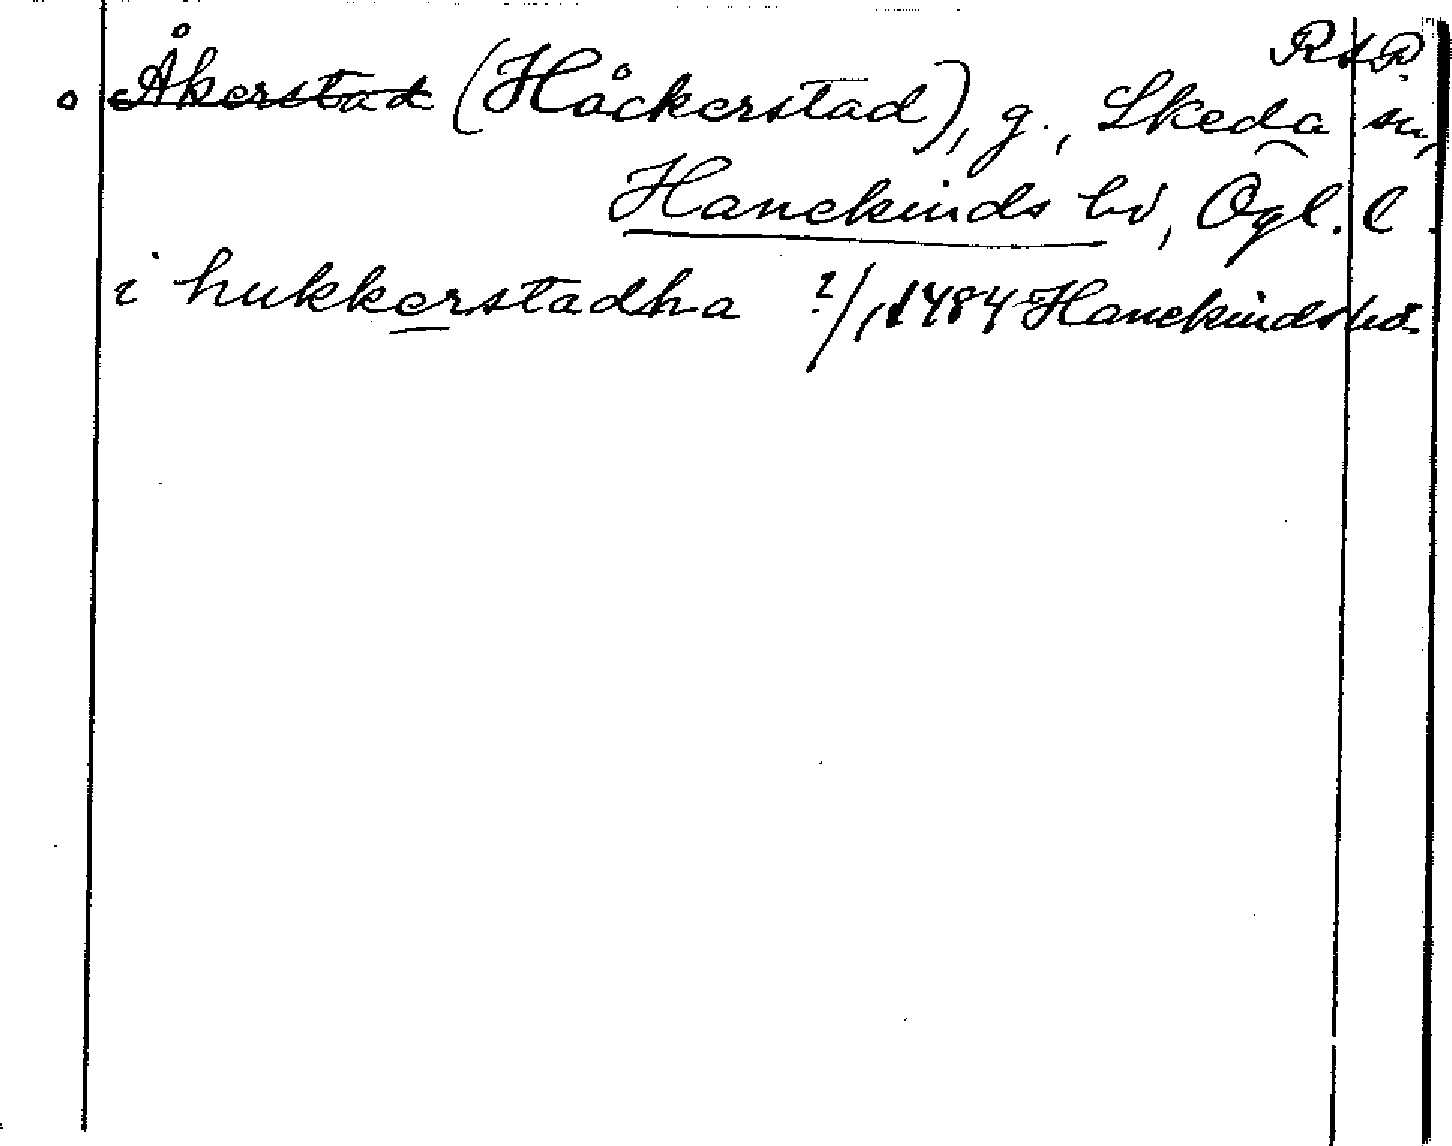 RAP
o Åkerstad (Håckerstad), g., Skeda sn,
Hanekinds hd, Ögl. l.
i hukkerstadha 2/1 1484 Hanekinds hd.